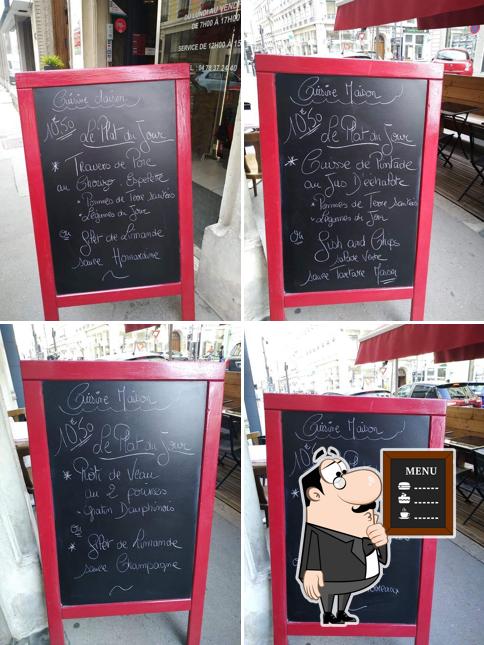 DU LUNDI AU VENDR
DE 7H00 À 17H00
SERVICE DE 12H00 À 15
TEL : 04 78 37 24 40
Cuisine Maison
10€50 Le Plat du Jour
* Travers de Porc
au Chorizo, Espelette
• Pommes de Terre Sautées
• Légumes du Jour
ou
Filet de Limande
sauce Homardine
Cuisine Maison
10€50 Le Plat du Jour
* Cuisse de Pintade
au Jus D'échalote
• Pommes de Terre Sautées
• Légumes du Jour
ou
Fish and Chips
salade Verte
sauce Tartare Maison
Cuisine Maison
10€50 Le Plat du Jour
* Rôti de Veau
au 2 poivres
• Gratin Dauphinois
ou
* Filet de Limande
sauce Champagne
Cuisine Maison
MENU